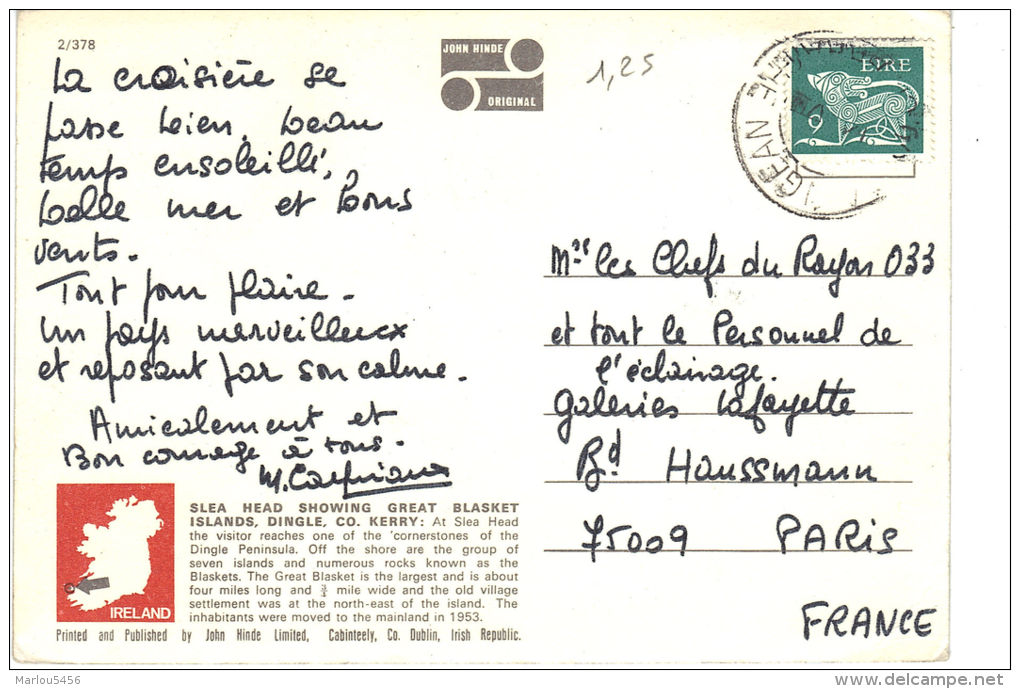 2/378
La croisière se
passe bien, beau
temps ensoleillé,
belle mer et bons
vents.
Tout pour plaire -
Un pays merveilleux
et reposant par son calme.
Amicalement et
Bon courage à tous.
JOHN HINDE
ORIGINAL
1,25
EIRE
9
Mrs les Chefs du Rayon 033
et tout le Personnel de
l'éclairage.
Galeries Lafayette
Bd Haussmann
75009 PARIS
FRANCE
IRELAND
SLEA HEAD SHOWING GREAT BLASKET
ISLANDS, DINGLE, CO. KERRY: At Slea Head
the visitor reaches one of the 'cornerstones of the
Dingle Peninsula. Off the shore are the group of
seven islands and numerous rocks known as the
Blaskets. The Great Blasket is the largest and is about
four miles long and ¾ mile wide and the old village
settlement was at the north-east of the island. The
inhabitants were moved to the mainland in 1953.
Printed and Published by John Hinde Limited, Cabinteely, Co. Dublin, Irish Republic.
Marlou5456
delcampe.net